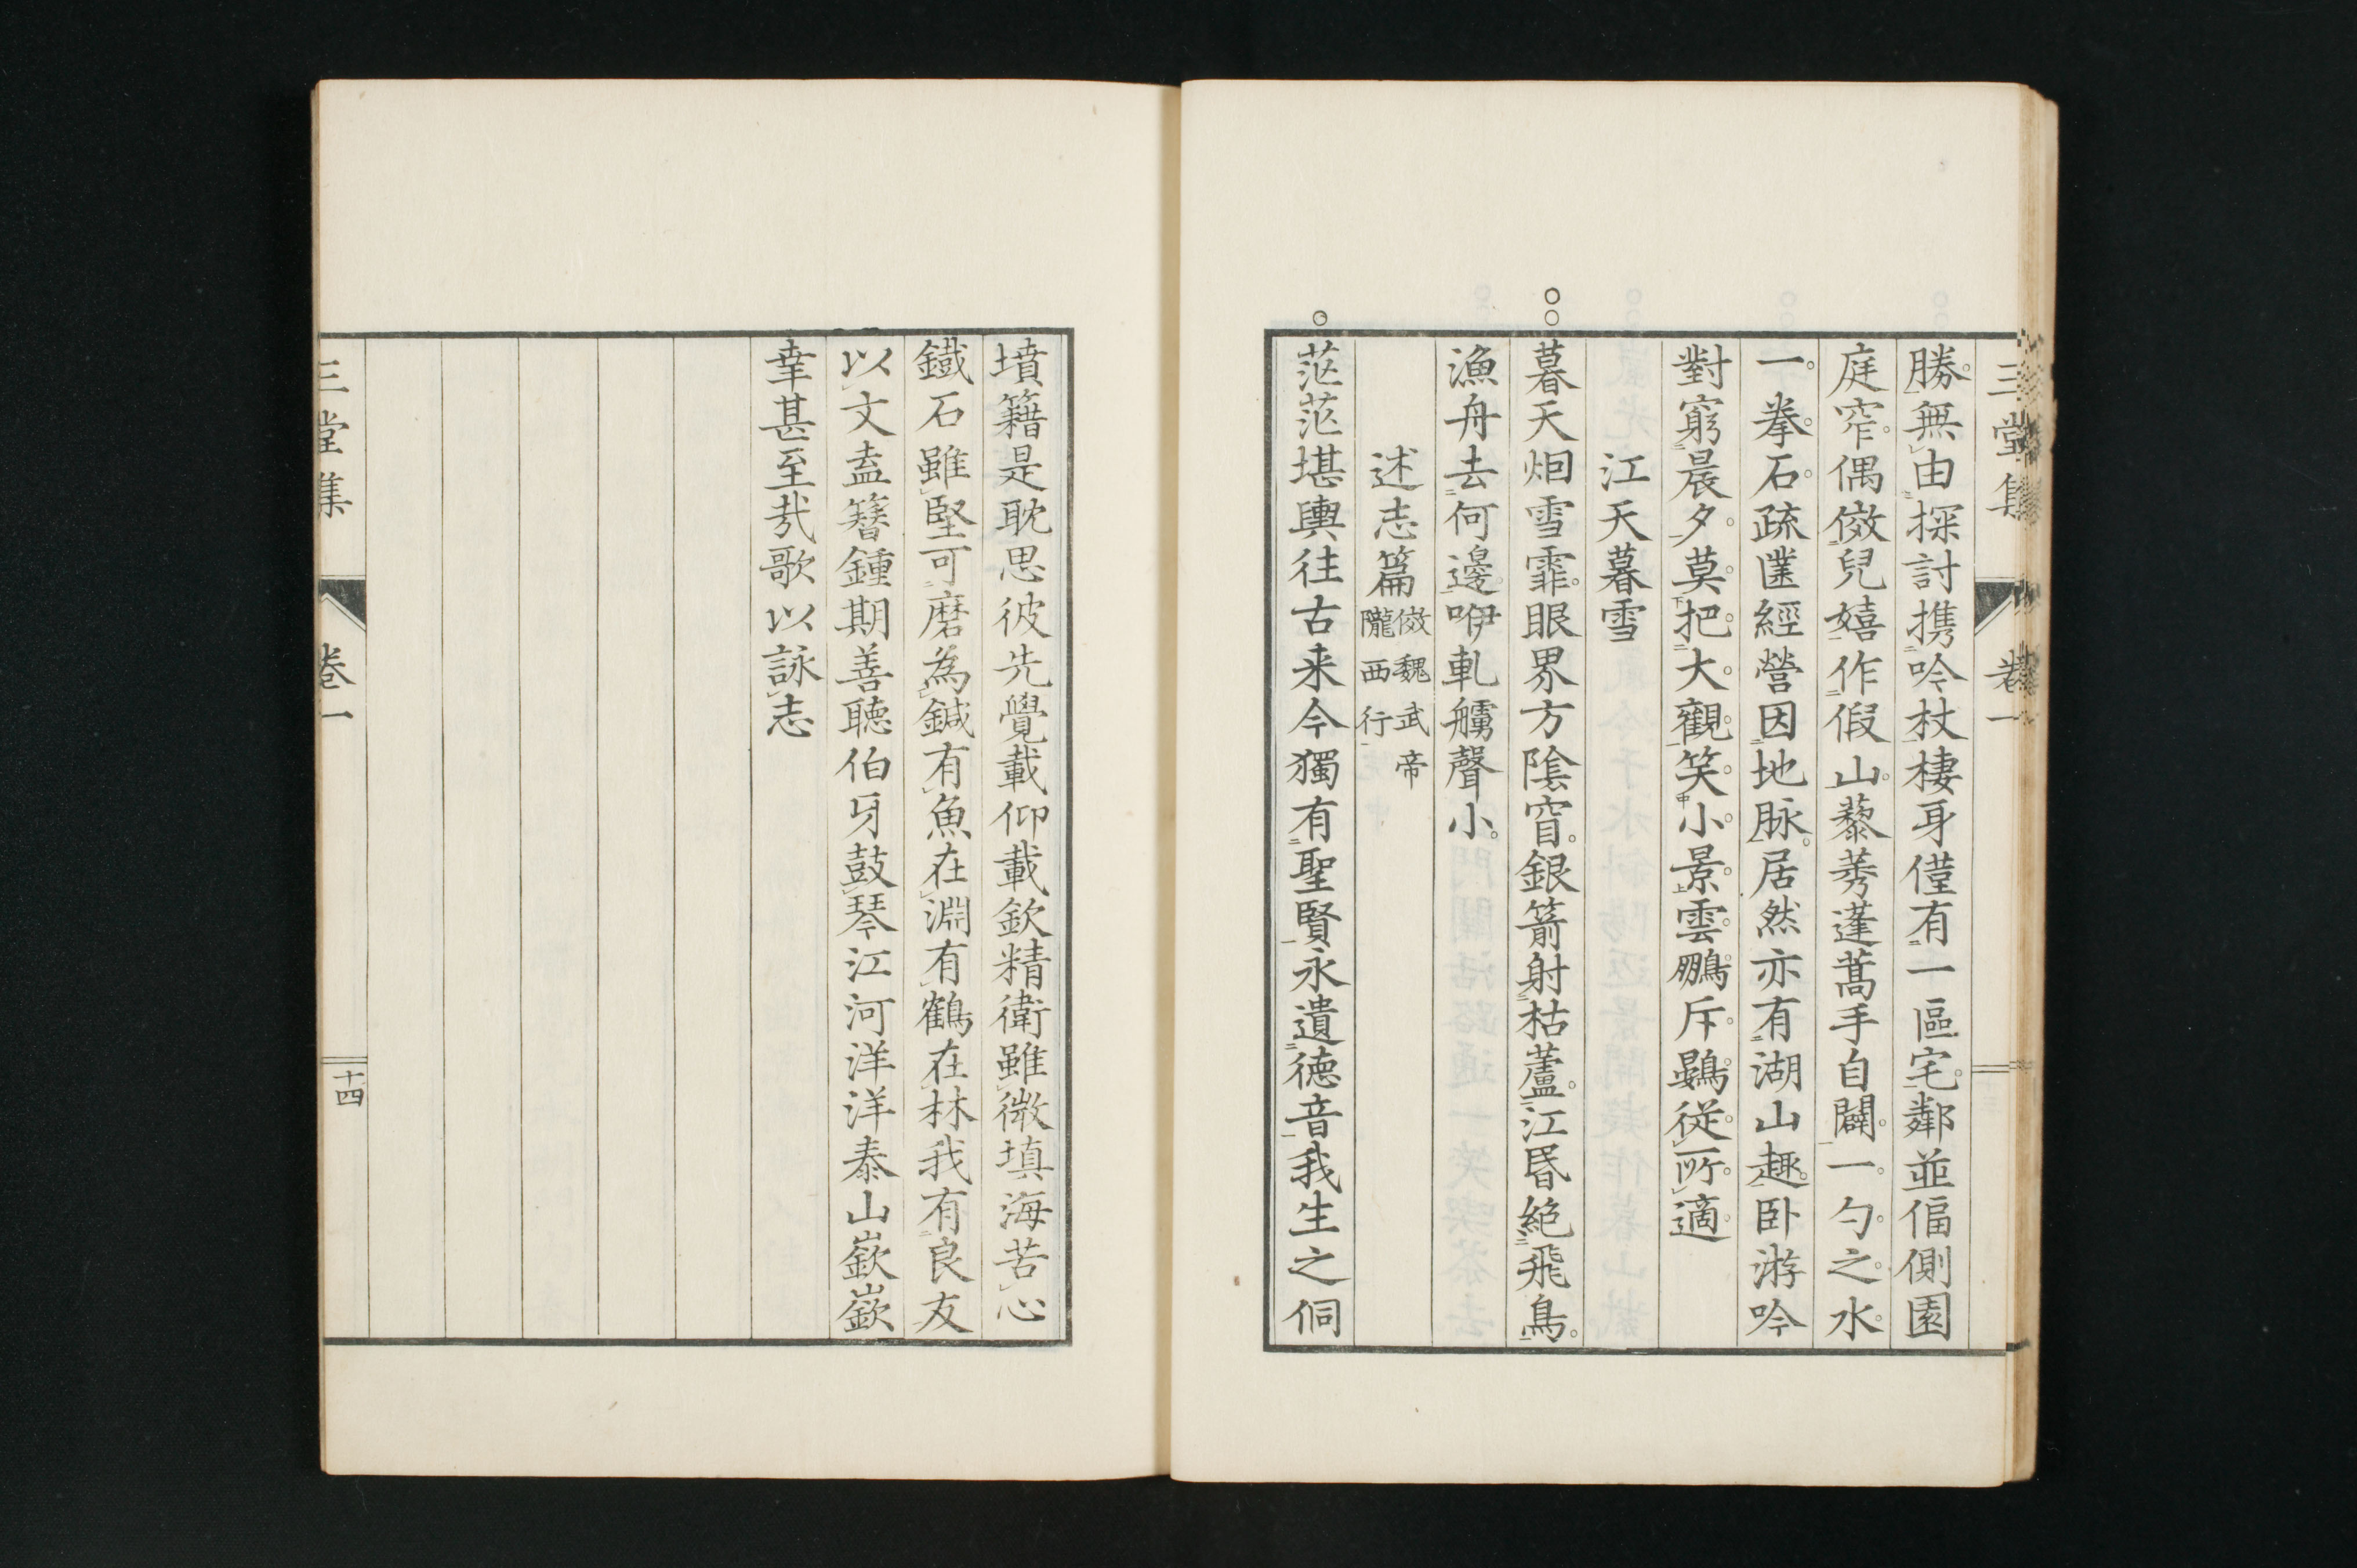 三堂集
卷一
勝無由探討携吟杖棲身僅有一區宅鄰並偪側園
庭窄偶傚兒嬉作假山藜莠蓬蒿手自闢一勺之水
一拳石疏鑿經營因地脉居然亦有湖山趣卧游吟
對窮晨夕莫把大觀笑小景雲鵬斥鷃從所適
江天暮雪
暮天烟雪霏眼界方陰窅銀箭射枯蘆江昏絶飛鳥
漁舟去何邊咿軋艣聲小
述志篇傚魏武帝
隴西行
茫茫堪輿往古来今獨有聖賢永遺德音我生之侗
墳籍是耽思彼先覺載仰載欽精衛雖微填海苦心
鐵石雖堅可磨為鍼有魚在淵有鶴在林我有良友
以文盍簪鍾期善聽伯牙鼓琴江河洋洋泰山嶔嶔
幸甚至哉歌以詠志
三堂集
卷一
十四